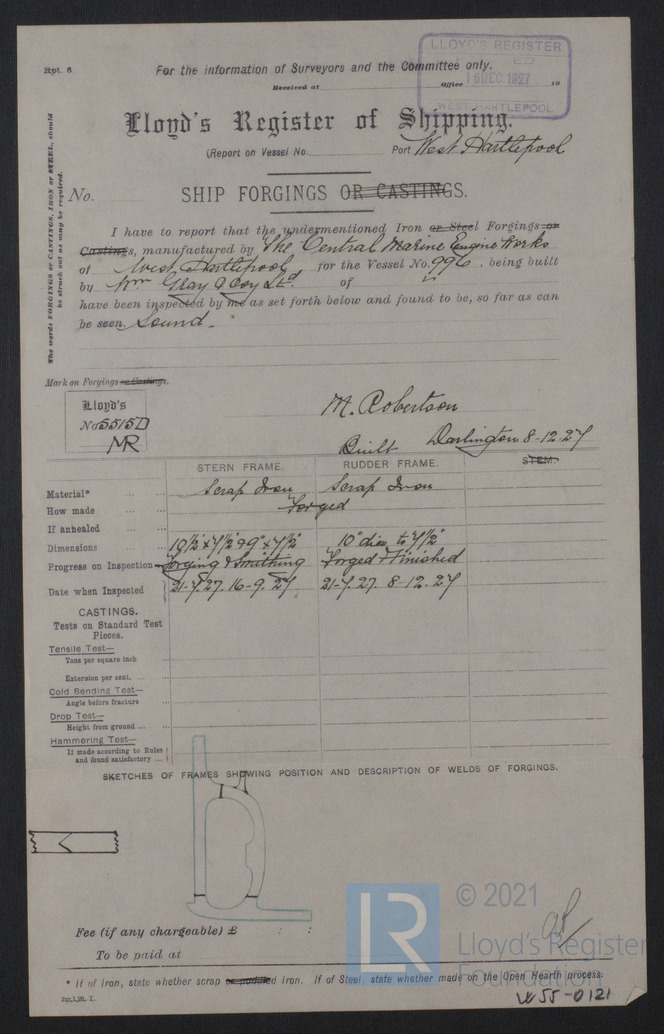 Rpt. 6
For the information of Surveyors and the Committee only.
LLOYD'S REGISTER
16 DEC. 1927
WEST HARTLEPOOL
Received at Office 19
Lloyd's Register of Shipping.
(Report on Vessel No. Port West Hartlepool
The words FORGINGS or CASTINGS, IRON or STEEL, should
be struck out as may be required.
No. SHIP FORGINGS OR CASTINGS.
I have to report that the undermentioned Iron or Steel Forgings or
Castings, manufactured by The Central Marine Engine Works
of West Hartlepool for the Vessel No. 996, being built
by Wm Gray & Coy Ltd. of "
have been inspected by me as set forth below and found to be, so far as can
be seen, Sound.
Mark on Forgings or Castings.
Lloyd's
No 5515D
MR
M. Robertson
Built Darlington 8-12-27
STERN FRAME. RUDDER FRAME. STEM.
Material* Scrap Iron Scrap Iron
How made Forged
If annealed
Dimensions 10½" x 7½" & 9" x 7½" 10" dia to 7½"
Progress on Inspection Forging & Smithing Forged & Finished
Date when Inspected 21-7-27. 16-9-27 21-7-27. 8-12-27
CASTINGS.
Tests on Standard Test
Pieces.
Tensile Test—
Tons per square inch
Extension per cent.
Cold Bending Test—
Angle before fracture
Drop Test—
Height from ground
Hammering Test—
If made according to Rules
and found satisfactory
SKETCHES OF FRAMES SHOWING POSITION AND DESCRIPTION OF WELDS OF FORGINGS.
Fee (if any chargeable) £ : :
To be paid at
* If of iron, state whether scrap or puddled iron. If of Steel, state whether made on the Open Hearth process.
LR
© 2021
Lloyd's Register
Foundation
W55-0121